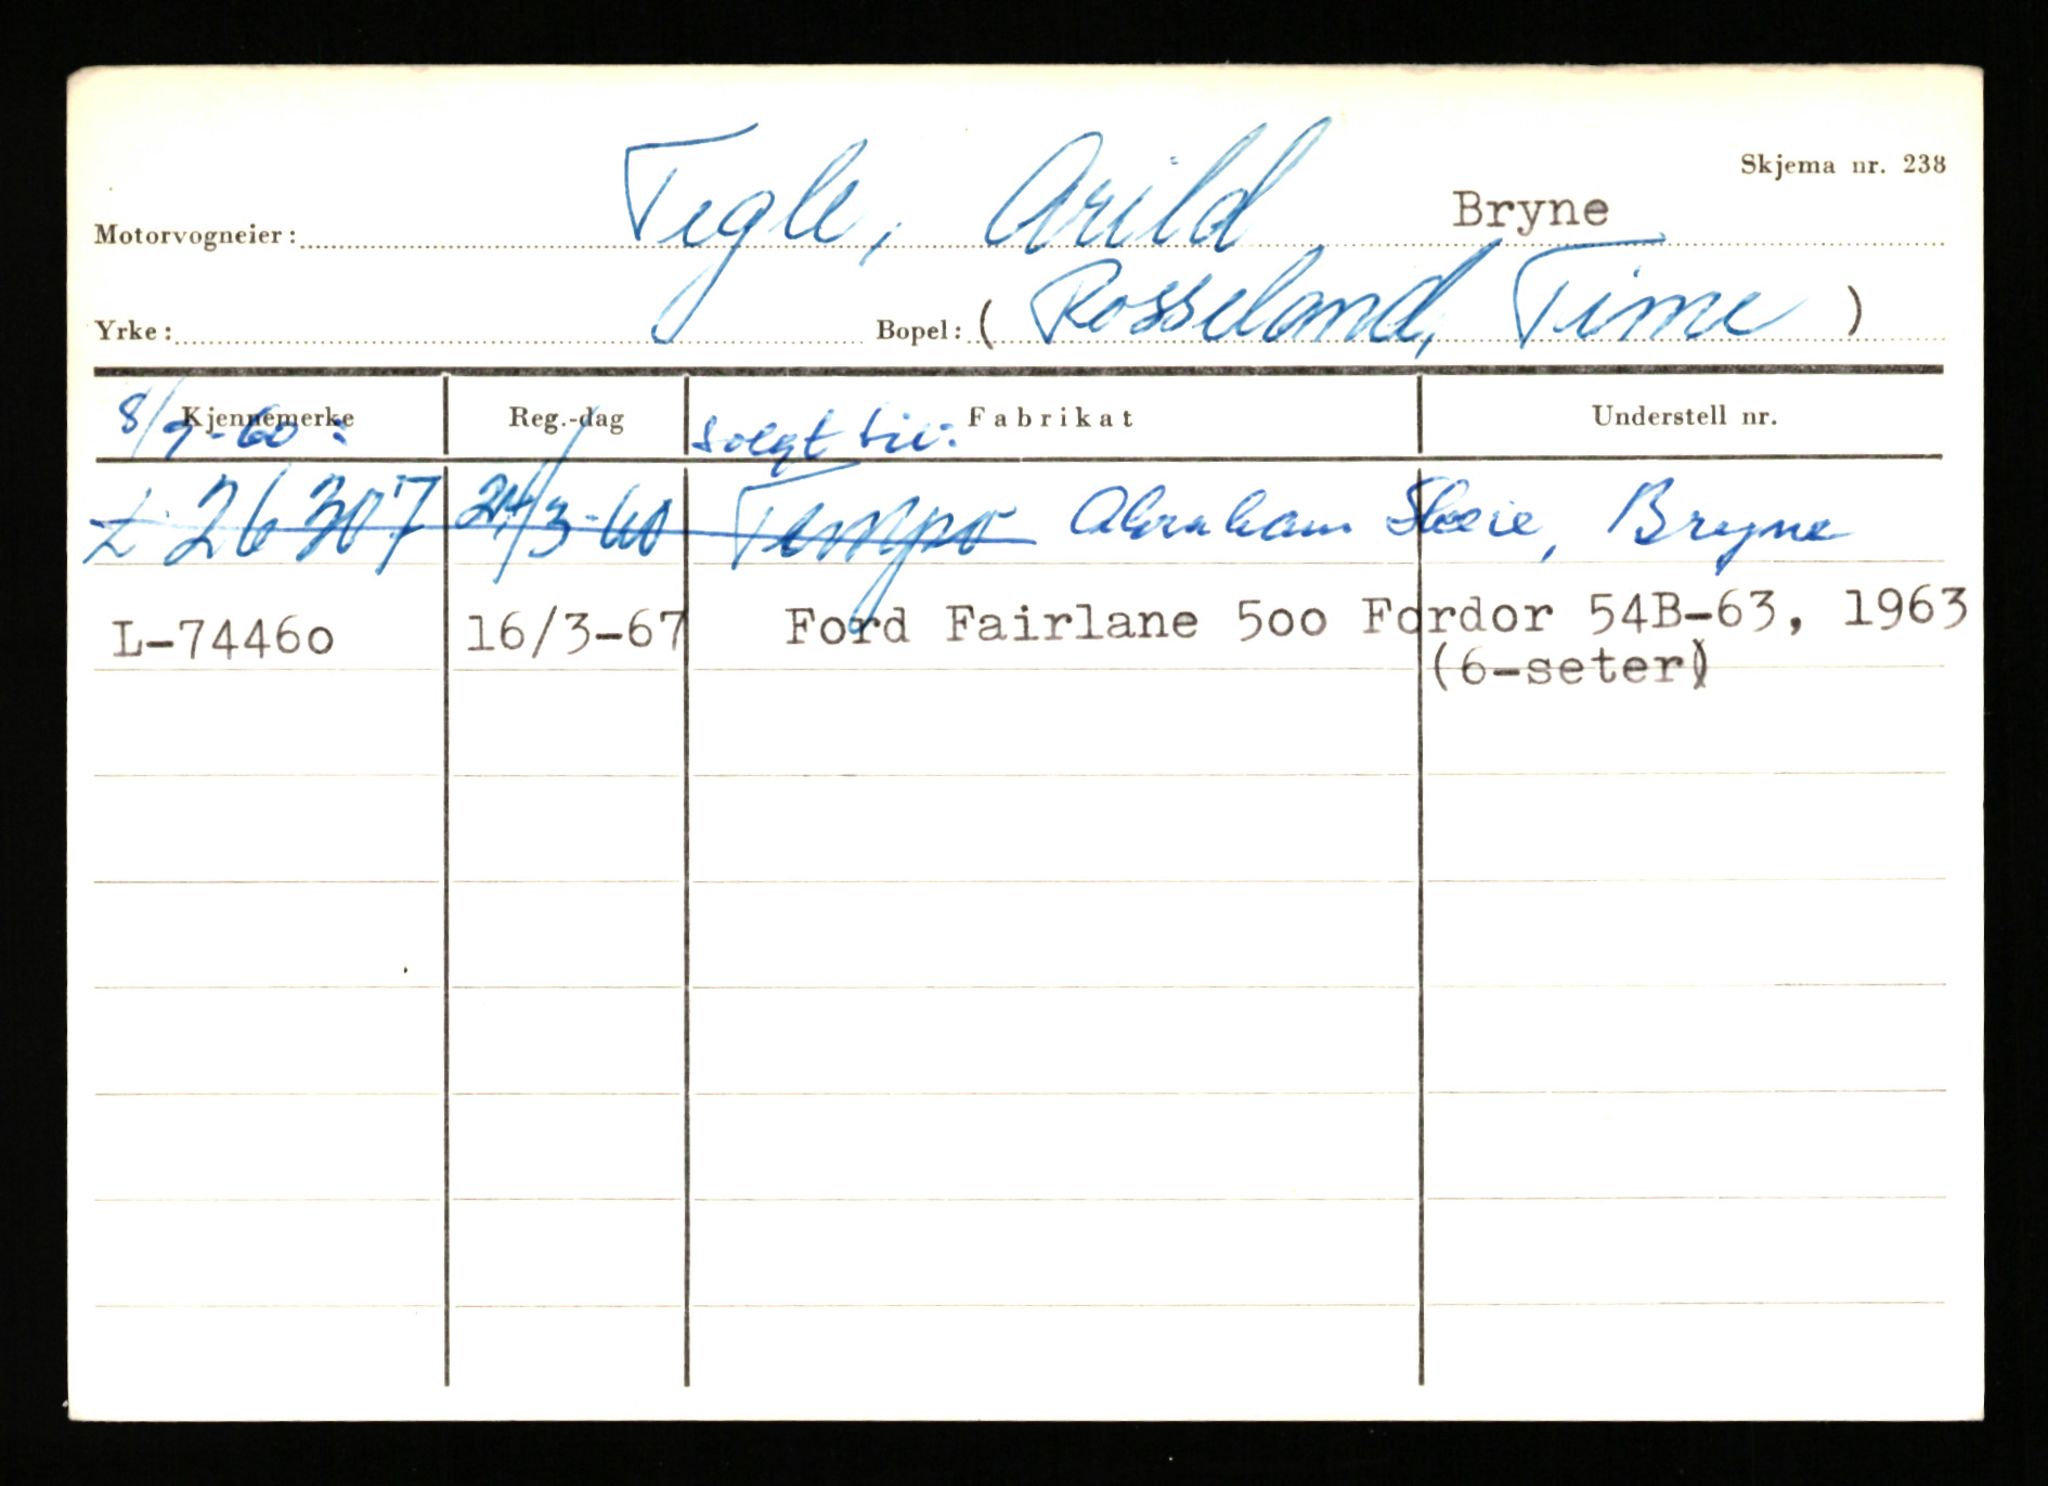 Skjema nr. 238
Motorvogneier: Tegle, Arild Bryne
Yrke: Bopel: ( Rosseland, Time )
Kjennemerke Reg.-dag Fabrikat Understell nr.
8/9-60: solgt til:
L 26307 24/3-60 Tempo Abraham Skeie, Bryne
L-7446o 16/3-67 Ford Fairlane 5oo Fordor 54B-63, 1963
(6-seter)